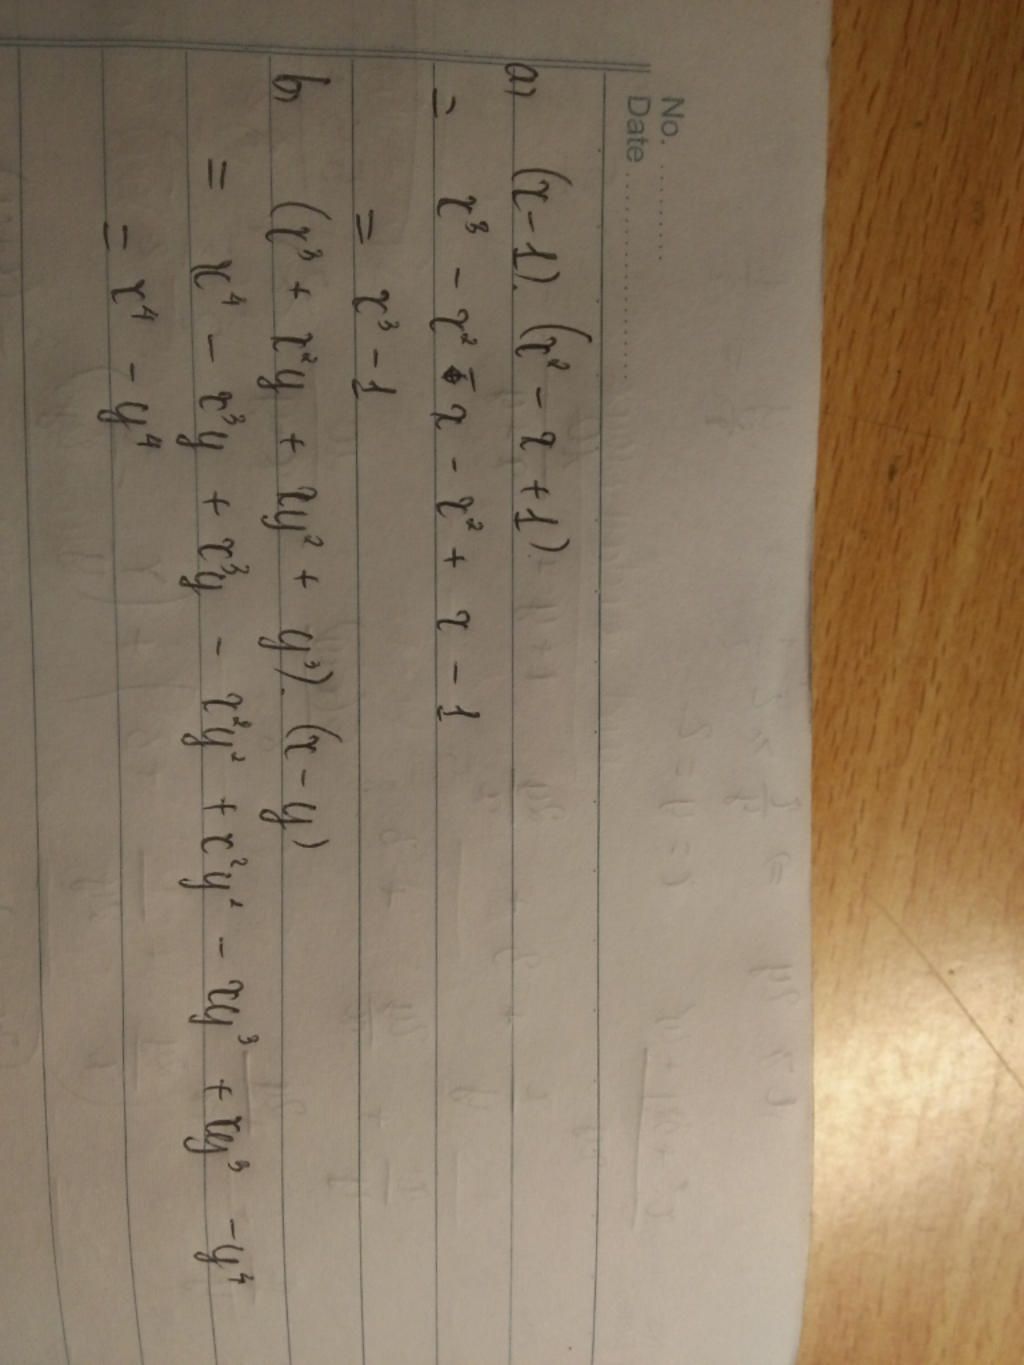 No. ............
Date ........................
a) (x-1). (x² - x + 1)
= x³ - x² - x - x² + x - 1
= x³ - 1
b) (x³ + x²y + xy² + y³). (x - y)
= x⁴ - x³y + x³y - x²y² + x²y² - xy³ + xy³ - y⁴
= x⁴ - y⁴